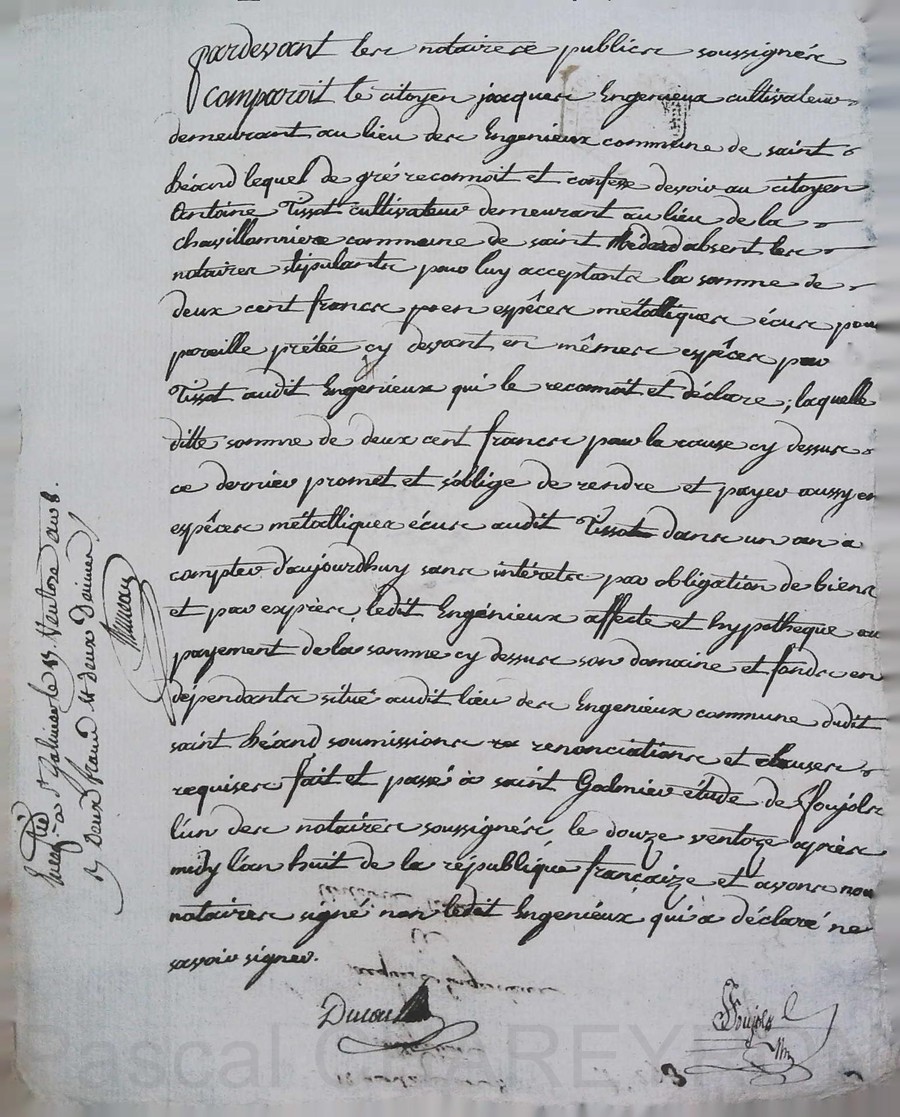 pardevant les notaires publics soussignés
Comparoit le citoyen jacques Engenieux cultivateur
demeurant au lieu des Engenieux commune de saint
héand lequel de gré reconnoit et confesse devoir au citoyen
Antoine Tissot cultivateur demeurant au lieu de la
chavillonniere commune de saint Médard absent les
notaires stipulants pour luy acceptants la somme de
deux cent francs en espêces métalliques écus pour
pareille prétée cy devant en mêmes espêces par
Tissot audit Engenieux qui le reconnoit et déclare ; laquelle
ditte somme de deux cent francs pour la cause cy dessus
ce dernier promet et s'oblige de rendre et payer aussy en
espêces métalliques écus audit Tissot dans un an a
compter d'aujourdhuy sans intérets par obligation de biens
et par exprès ledit Engénieux affecte et hypotheque au
payement de la somme cy dessus son domaine et fonds en
dépendants situé audit lieu des Engenieux commune dudit
saint héand soumissions renonciations et clauses
requises fait et passé à saint Galmier étude de Foujols
l'un des notaires soussignés le douze ventoze après
midy l'an huit de la république françaize et avons nous
notaires signé non ledit Engenieux qui a déclaré ne
savoir signer.
Foujols
Enregtré à St Galmier le 15 Ventose an 8.
deux francs et deux décimes
ascal C AREYRON